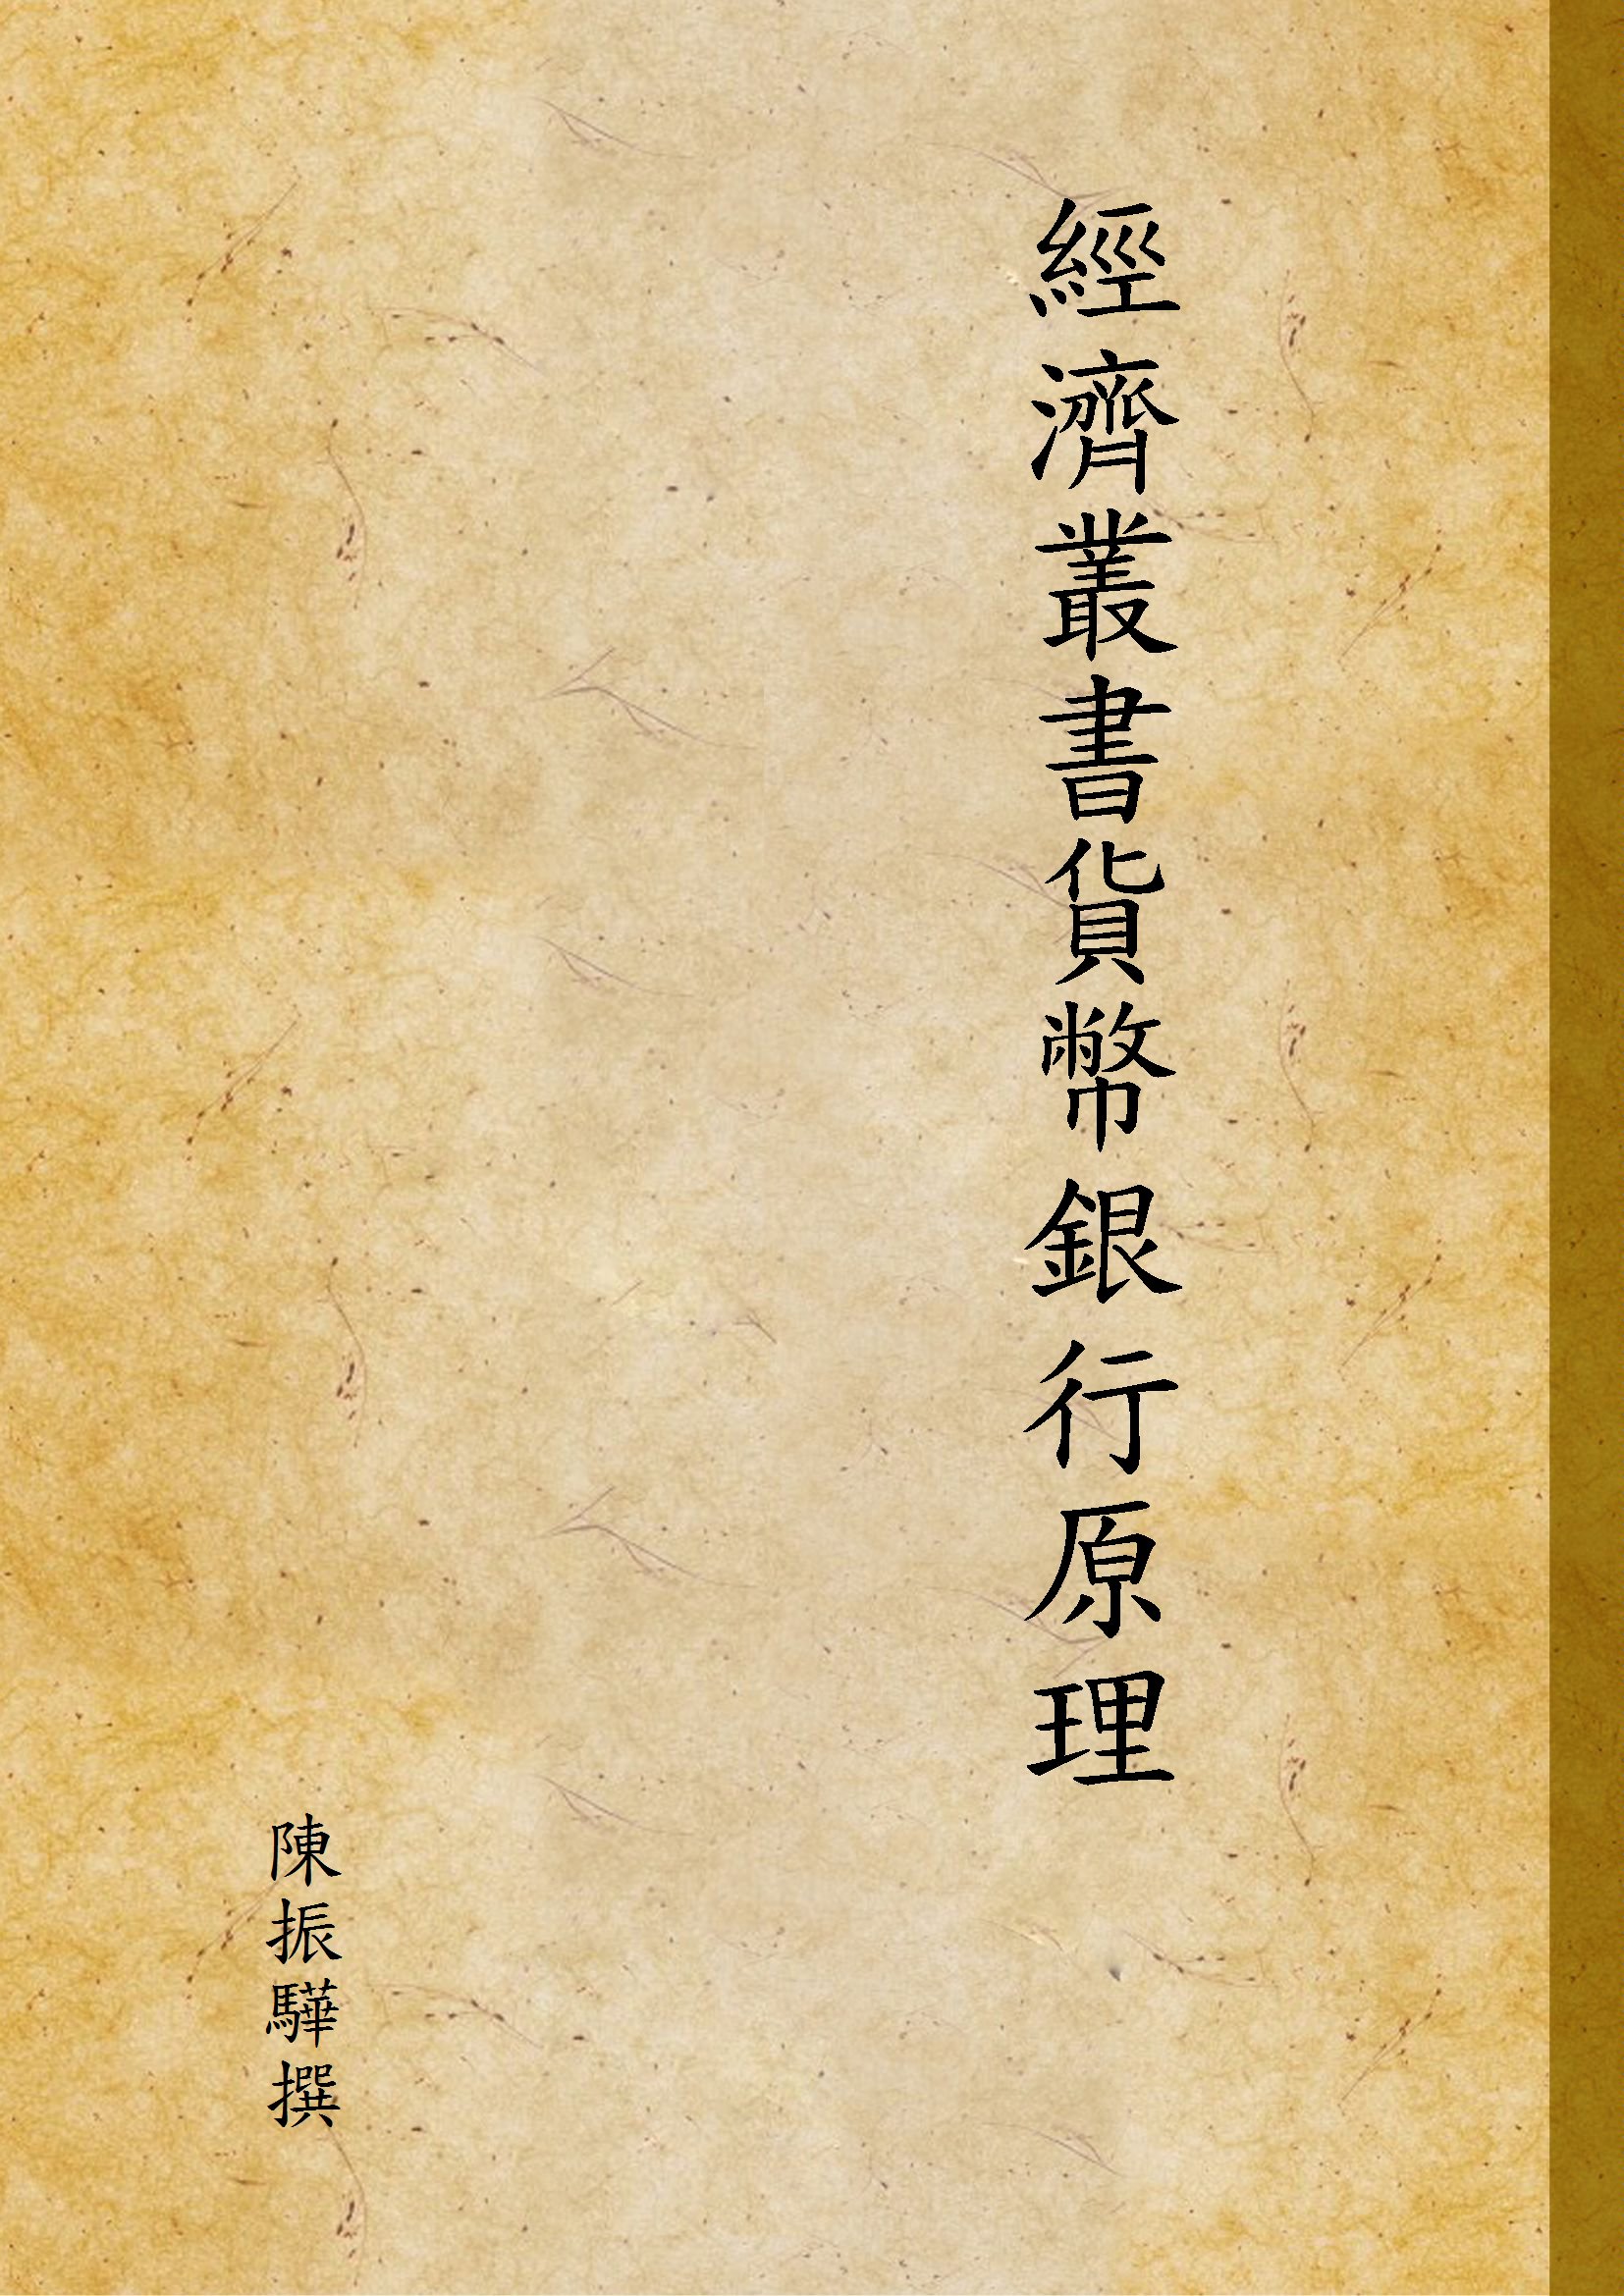 經濟叢書貨幣銀行原理
陳振驊撰